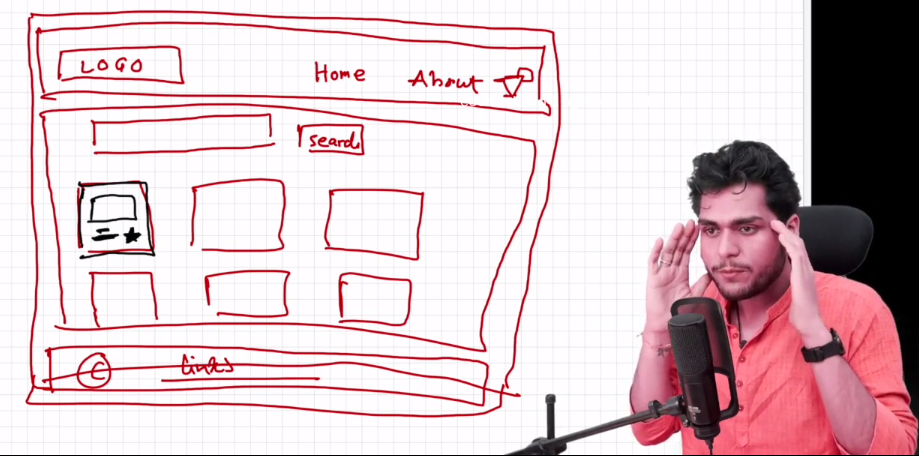 LOGO
Home About
search
C
links